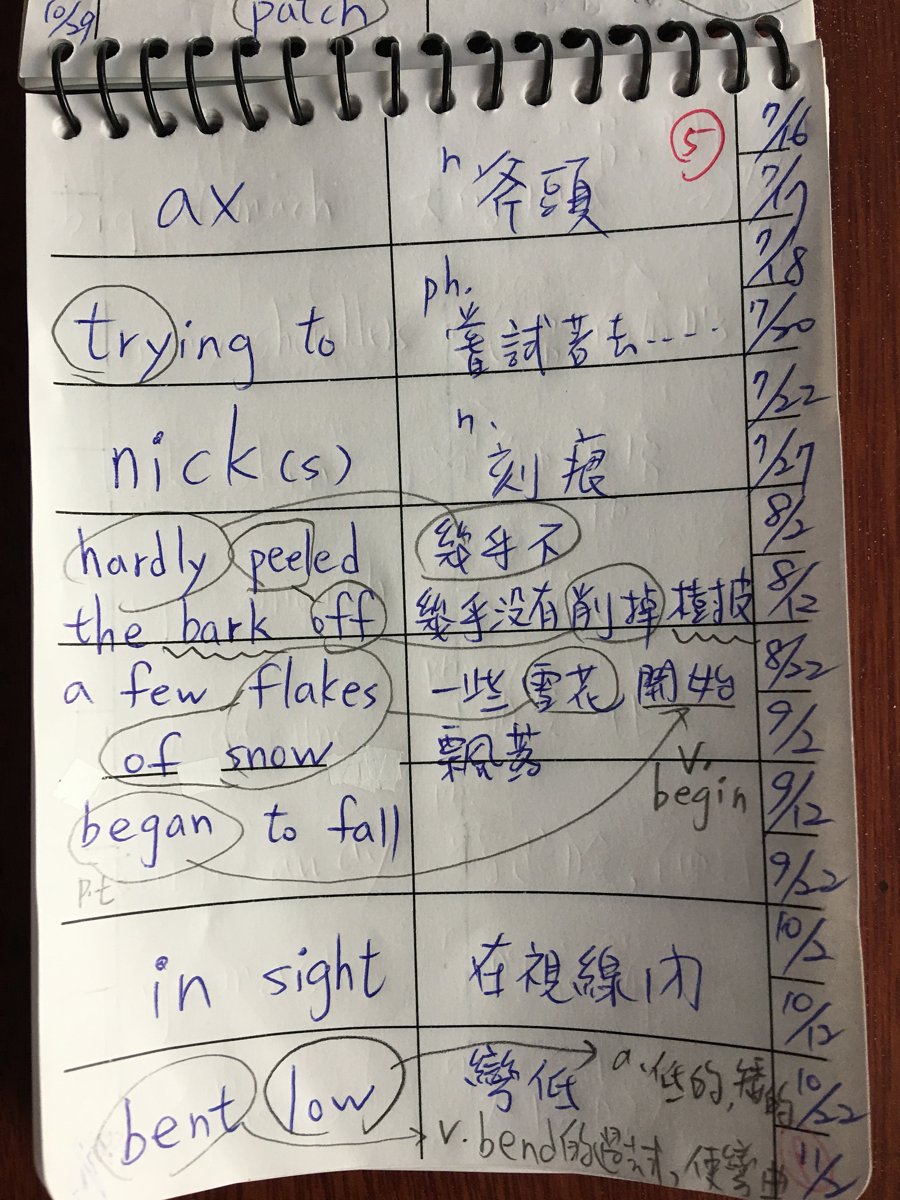 10/29 patch
⑤
ax n 斧頭 7/16
7/17
7/18
trying to ph. 嘗試著去····· 7/20
7/22
nick(s) n. 刻痕 7/27
hardly peeled 幾乎不 8/2
the bark off 幾乎没有削掉樹皮 8/12
a few flakes 一些雪花 開始 8/22
of snow 飄落 9/2
v.
begin 9/12
began to fall
p.t 9/22
in sight 在視線内 10/2
10/12
bent low 彎低 a.低的,矮的 10/22
v. bend的過去式, 使彎曲 11/2